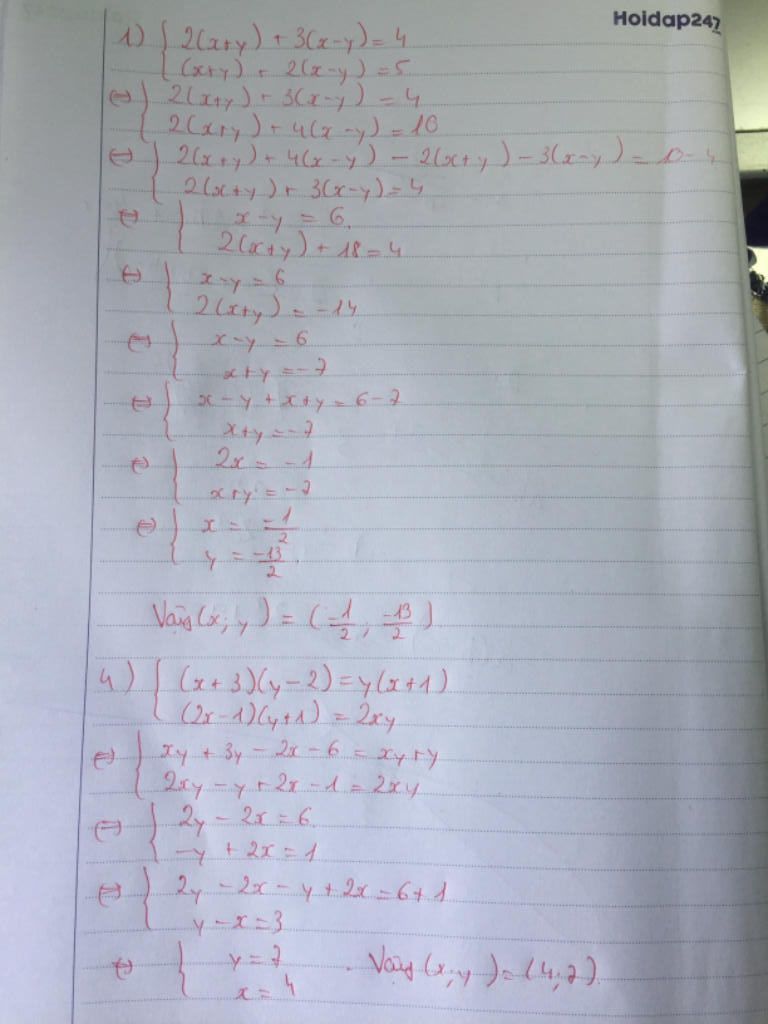 Hoidap247
1) { 2(x+y) + 3(x-y) = 4
(x+y) + 2(x-y) = 5
⇔ { 2(x+y) + 3(x-y) = 4
2(x+y) + 4(x-y) = 10
⇔ { 2(x+y) + 4(x-y) - 2(x+y) - 3(x-y) = 10-4
2(x+y) + 3(x-y) = 4
⇔ { x-y = 6.
2(x+y) + 18 = 4
⇔ { x-y = 6
2(x+y) = -14
⇔ { x-y = 6
x+y = -7
⇔ { x-y+x+y = 6-7
x+y = -7
⇔ { 2x = -1
x+y = -7
⇔ { x = -1/2
y = -13/2.
Vậy (x; y) = (-1/2; -13/2)
4) { (x+3)(y-2) = y(x+1)
(2x-1)(y+1) = 2xy
⇔ { xy + 3y - 2x - 6 = xy+y
2xy - y + 2x - 1 = 2xy
⇔ { 2y - 2x = 6
-y + 2x = 1
⇔ { 2y - 2x - y + 2x = 6+1
y - x = 3
⇔ { y = 7 . Vậy (x; y) = (4; 7).
x = 4